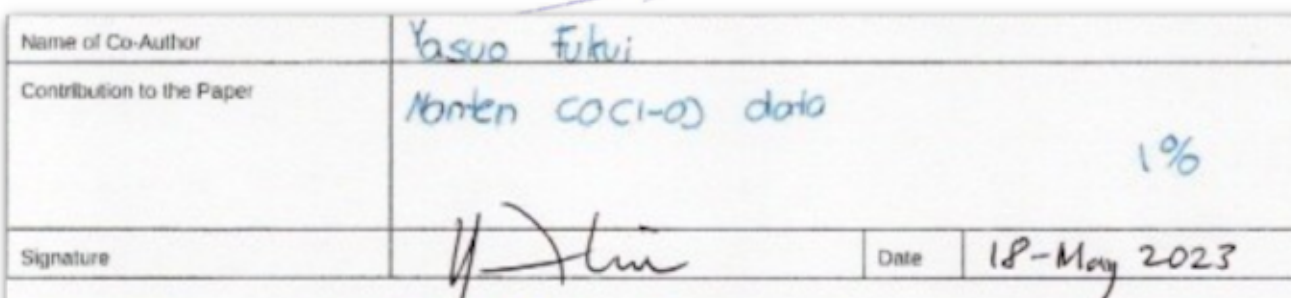 Name of Co-Author Yasuo Fukui
Contribution to the Paper Nanten CO(1-0) data
1%
Signature Date 18-May 2023